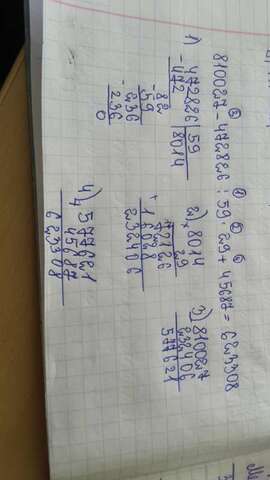 ③ ① ② ④
810027 - 472826 : 59 · 29 + 45687 = 623308
1) - 472826 | 59
472 | 8014
- 82
59
- 236
236
0
2) x 8014
29
72126
+ 16028
232406
3) - 810027
232406
577621
4) + 577621
45687
623308